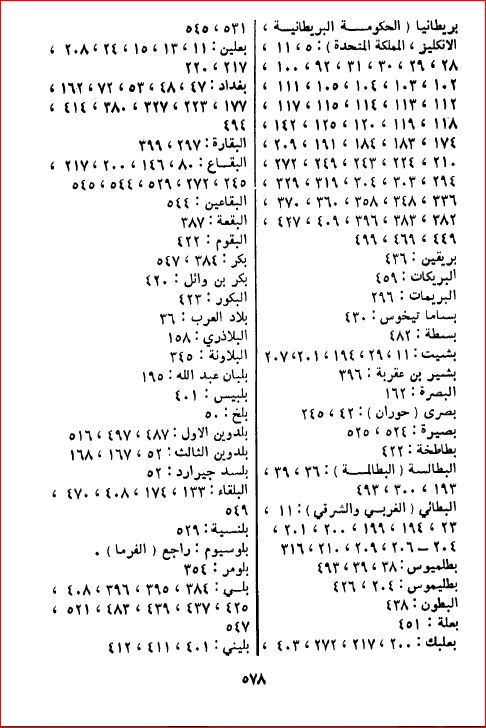 بريطانيا ( الحكومــة البريطانيــة ،
الانكليز ، المملكة المتحدة ) : ٥ ، ١١ ،
٢٨ ، ٢٩ ، ٣٠ ، ٣١ ، ٩٢ ، ١٠٠ ،
١٠٢ ، ١٠٣ ، ١٠٤ ، ١٠٥ ، ١١١ ،
١١٢ ، ١١٣ ، ١١٤ ، ١١٥ ، ١١٧ ،
١١٨ ، ١١٩ ، ١٢٠ ، ١٢٥ ، ١٤٢ ،
١٧٤ ، ١٨٣ ، ١٨٤ ، ١٩١ ، ٢٠٩ ،
٢١٠ ، ٢٢٤ ، ٢٤٣ ، ٢٤٩ ، ٢٧٢ ،
٢٩٤ ، ٣٠٣ ، ٣٠٤ ، ٣١٩ ، ٣٢٩ ،
٣٣٦ ، ٣٤٨ ، ٣٥٨ ، ٣٦٠ ، ٣٧٠ ،
٣٨٢ ، ٣٨٣ ، ٣٩٦ ، ٤٠٩ ، ٤٢٧ ،
٤٤٩ ، ٤٦٩ ، ٤٩٩
بريقين : ٤٣٦
البريكات : ٤٥٩
البريمات : ٢٩٦
بساما تيخوس : ٤٣٠
بسطة : ٤٨٢
بشيت : ١١ ، ٢٩ ، ١٩٤ ، ٢٠١ ، ٢٠٧
بشير بن عقربة : ٣٩٦
البصرة : ١٦٢
بصرى ( حوران ) : ٤٢ ، ٢٤٥
بصيرة : ٥٢٤ ، ٥٢٥
بطاطخة : ٤٢٢
البطالسة ( البطالمــة ) : ٣٦ ، ٣٩ ،
١٩٣ ، ٣٠٠ ، ٤٩٣
البطائي ( الغربي والشرقي ) : ١١ ،
٢٣ ، ١٩٤ ، ١٩٩ ، ٢٠٠ ، ٢٠١ ،
٢٠٤ – ٢٠٦ ، ٢٠٩ ، ٢١٠ ، ٣١٦
بطلميوس : ٣٨ ، ٣٩ ، ٤٩٣
بطليموس : ٢٠٤ ، ٤٢٦
البطون : ٤٣٨
بعلة : ٤٥١
بعلبك : ٢٠٠ ، ٢١٧ ، ٢٧٢ ، ٤٠٣ ،
٥٣١ ، ٥٤٥
بعلين : ١١ ، ١٣ ، ١٥ ، ٢٤ ، ٢٠٨ ،
٢١٧ ، ٢٢٠
بغداد : ٤٧ ، ٤٨ ، ٥٣ ، ٧٢ ، ١٦٢ ،
١٧٧ ، ٢٢٣ ، ٣٢٧ ، ٣٨٠ ، ٤١٤ ،
٤٩٤
البقارة : ٢٩٧ ، ٣٩٩
البقـاع : ٨٠ ، ١٤٦ ، ٢٠٠ ، ٢١٧ ،
٢٤٥ ، ٢٧٢ ، ٥٢٩ ، ٥٤٤ ، ٥٤٥
البقاعين : ٥٤٤
البقعة : ٣٨٧
البقوم : ٤٢٢
بكر : ٣٨٤ ، ٥٤٧
بكر بن وائل : ٤٢٠
البكور : ٤٢٣
بلاد العرب : ٣٦
البلاذري : ١٥٨
البلاونة : ٣٤٥
بلبان عبد الله : ١٩٥
بلبيس : ٤٠١
بلخ : ٥٠
بلدوين الاول : ٤٨٧ ، ٤٩٧ ، ٥١٦
بلدوين الثالث : ٥٢ ، ١٦٧ ، ١٦٨
بلسد جيرارد : ٥٢
البلقاء : ١٣٣ ، ١٧٤ ، ٤٠٨ ، ٤٧٠ ،
٥٤٩
بلنسية : ٥٢٩
بلوسيوم : راجع ( الفرما ) .
بلومر : ٣٥٤
بلــي : ٣٨٤ ، ٣٩٥ ، ٣٩٦ ، ٤٠٨ ،
٤٢٥ ، ٤٣٧ ، ٤٣٩ ، ٤٨٣ ، ٥٢١ ،
٥٤٧
بليني : ٤٠١ ، ٤١١ ، ٤١٢
٥٧٨